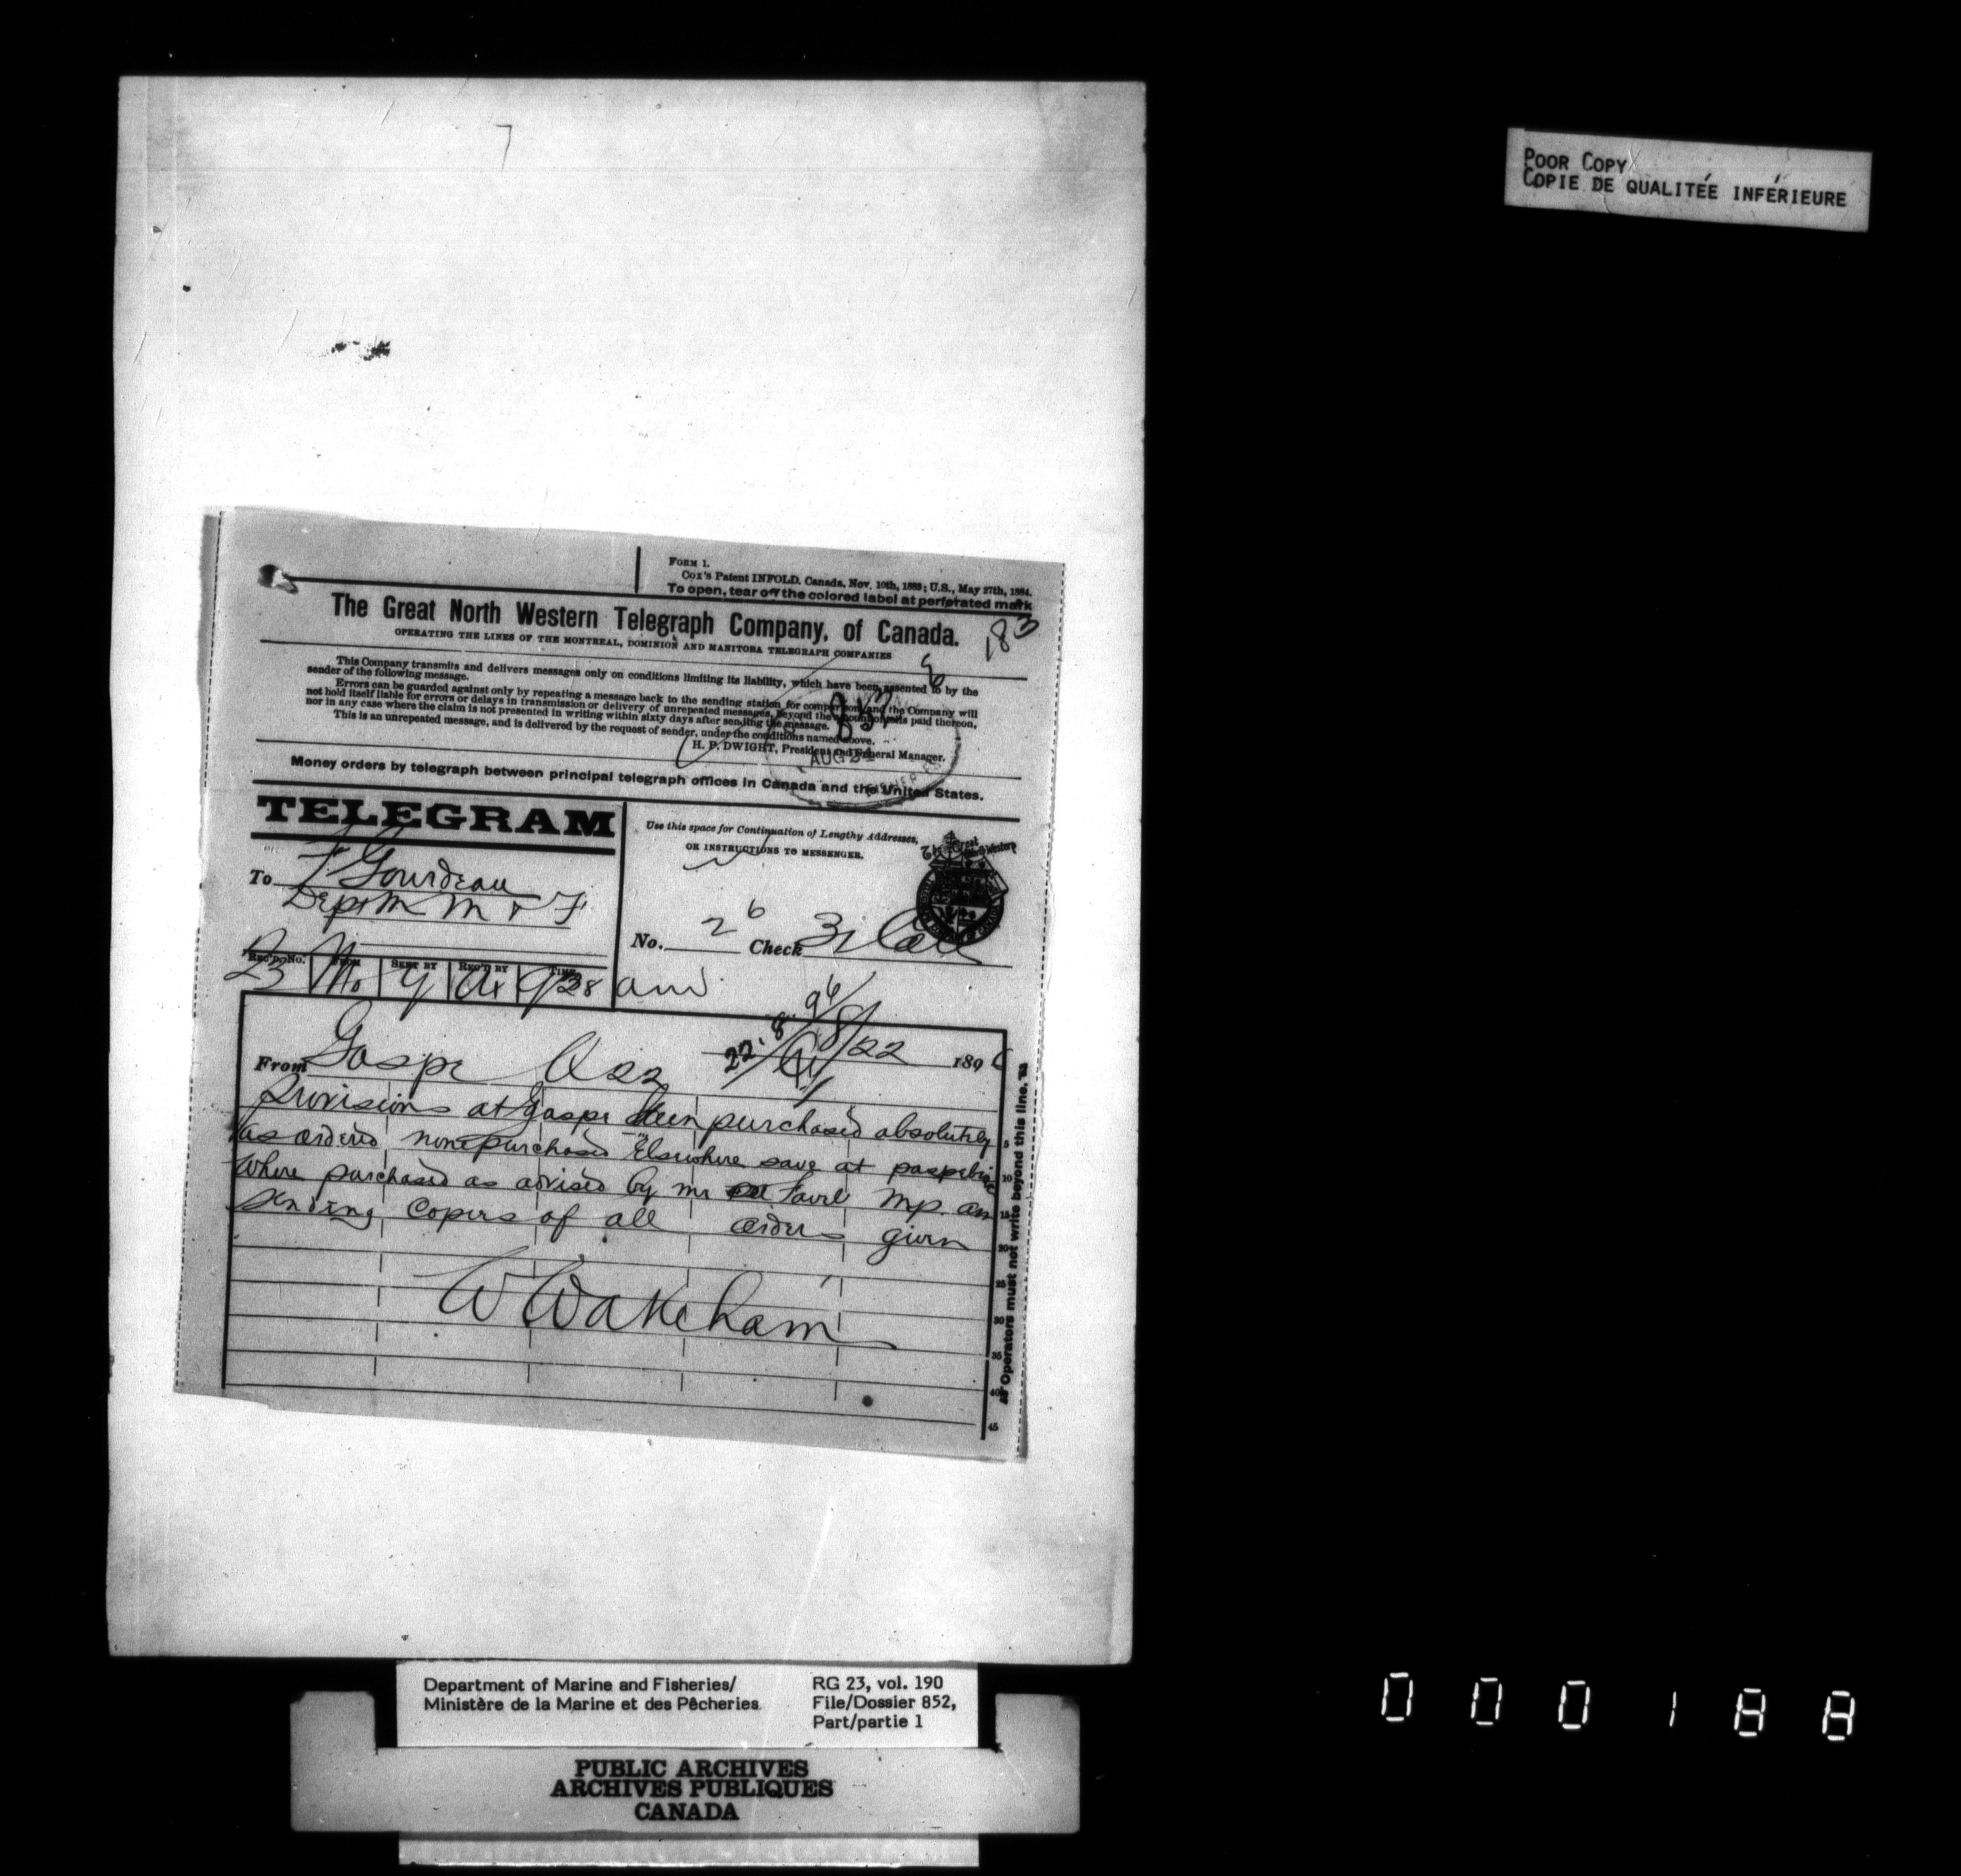 POOR COPY
COPIE DE QUALITÉE INFÉRIEURE
FORM 1.
Cox's Patent INFOLD. Canada, Nov. 10th, 1883; U.S., May 27th, 1884.
To open, tear off the colored label at perforated mark
The Great North Western Telegraph Company, of Canada.
183
OPERATING THE LINES OF THE MONTREAL, DOMINION AND MANITOBA TELEGRAPH COMPANIES
This Company transmits and delivers messages only on conditions limiting its liability, which have been assented to by the
sender of the following message.
Errors can be guarded against only by repeating a message back to the sending station for comparison, and the Company will
not hold itself liable for errors or delays in transmission or delivery of unrepeated messages, beyond the amount of tolls paid thereon,
nor in any case where the claim is not presented in writing within sixty days after sending the message.
This is an unrepeated message, and is delivered by the request of sender, under the conditions named above.
H. P. DWIGHT, President and General Manager.
852
AUG 24
Money orders by telegraph between principal telegraph offices in Canada and the United States.
TELEGRAM
Use this space for Continuation of Lengthy Addresses,
OR INSTRUCTIONS TO MESSENGER.
The Great North Western
To F Gourdeau
Dept M M & F
No. 26 Check
REC'D No. FROM SENT BY REC'D BY TIME
23 Mo 928 am
22.8.96
From Gaspe 8/22 1896
Provisions at Gaspe been purchased absolutely
as ordered none purchased Elsewhere save at paspebiac
where purchased as advised by mr Fauvel MP. am
sending Copies of all orders given
W Wakeham
5
10
15
20
25
30
35
40
45
Operators must not write beyond this line.
Department of Marine and Fisheries/
Ministère de la Marine et des Pêcheries
RG 23, vol. 190
File/Dossier 852,
Part/partie 1
PUBLIC ARCHIVES
ARCHIVES PUBLIQUES
CANADA
000188